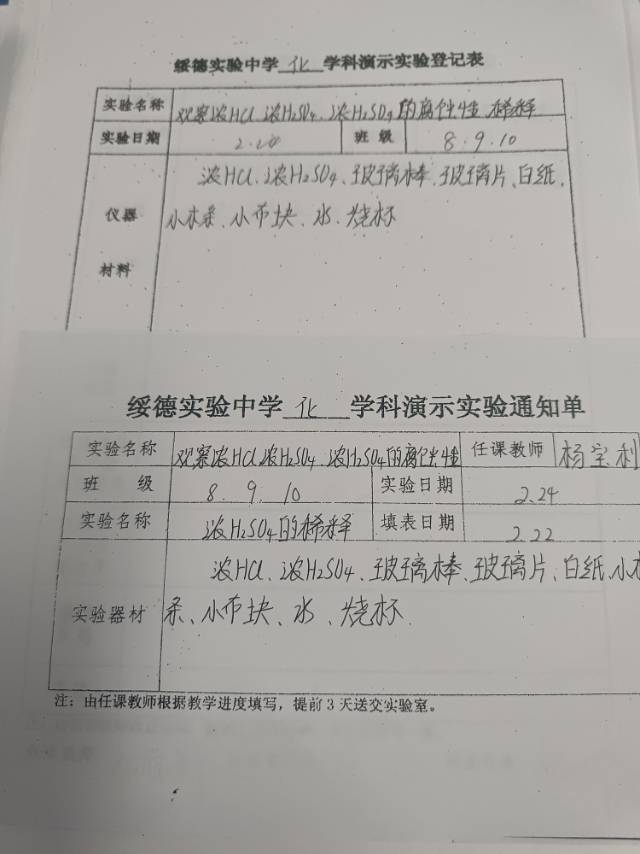 绥德实验中学 化 学科演示实验登记表
实验名称 观察浓HCl、浓H₂SO₄、浓H₂SO₄的腐蚀性 稀释
实验日期 2.24 班 级 8.9.10
浓HCl、浓H₂SO₄、玻璃棒、玻璃片、白纸、
仪器 小木条、小布块、水、烧杯
材料
绥德实验中学 化 学科演示实验通知单
实验名称 观察浓HCl浓H₂SO₄、浓H₂SO₄的腐蚀性 任课教师 杨宝利
班 级 8.9.10 实验日期 2.24
实验名称 浓H₂SO₄的稀释 填表日期 2.22
浓HCl、浓H₂SO₄、玻璃棒、玻璃片、白纸、小木
实验器材 条、小布块、水、烧杯
注：由任课教师根据教学进度填写，提前3天送交实验室。